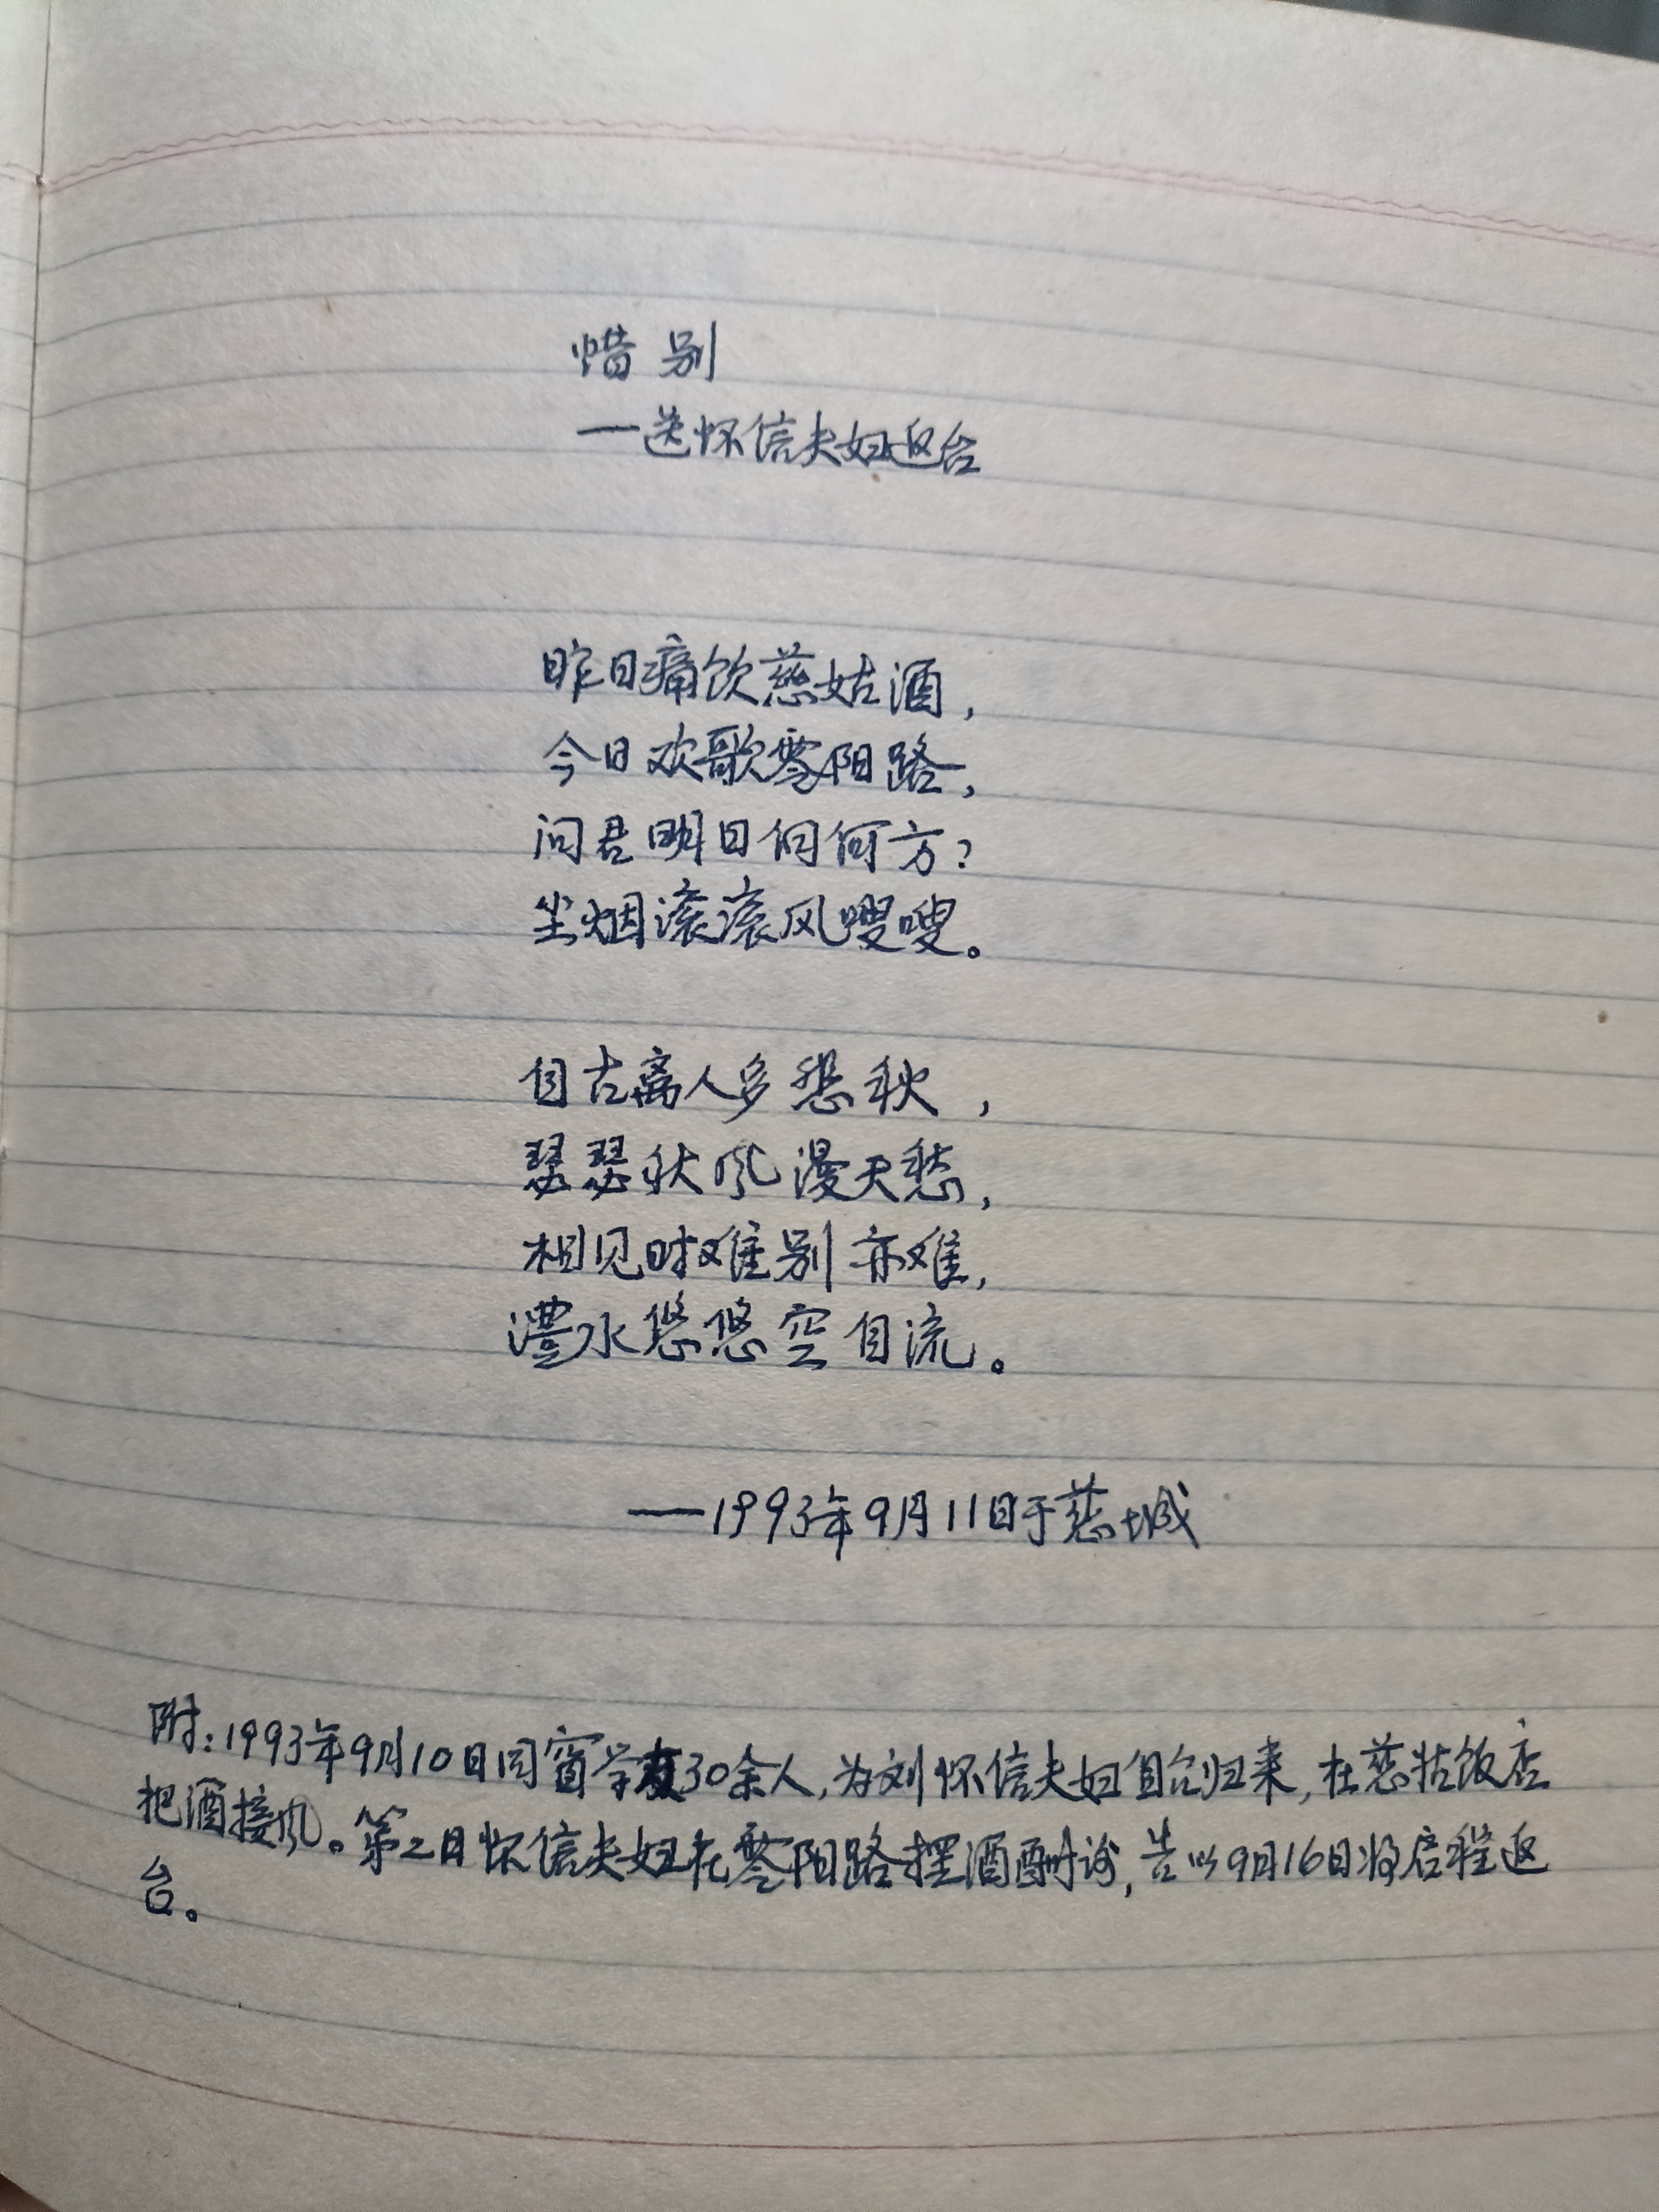 惜别
—送怀信夫妇返台
昨日痛饮慈姑酒，
今日欢歌零阳路，
问君明日何何方？
尘烟滚滚风嗖嗖。
自古离人多愁秋，
瑟瑟秋风漫天愁，
相见时难别亦难，
澧水悠悠空自流。
——1993年9月11日于慈城
附：1993年9月10日同窗学友30余人，为刘怀信夫妇自台归来，在慈姑饭店
把酒接风。第二日怀信夫妇在零阳路摆酒酬谢，告以9月16日将启程返
台。